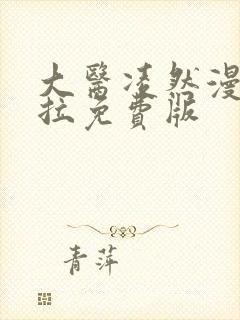 大醫凌然漫
拉免費版
青萍